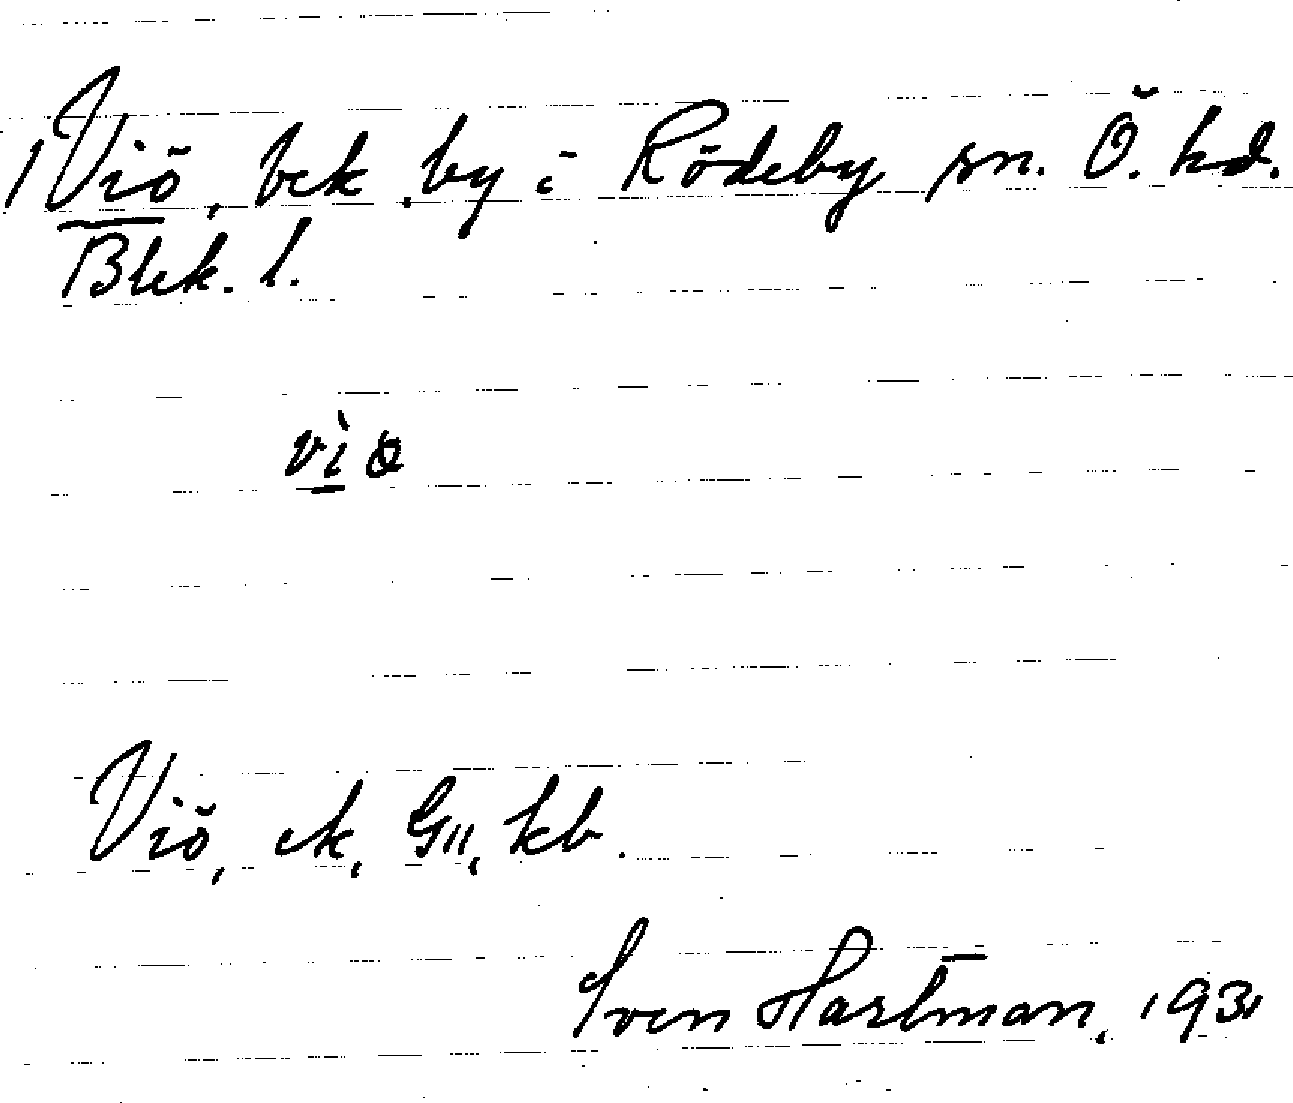 1 Viö, bek. by i Rödeby sn. Ö. hd.
Blek. l.
Viö, ek, GII, kb.
Sven Hartman, 1931